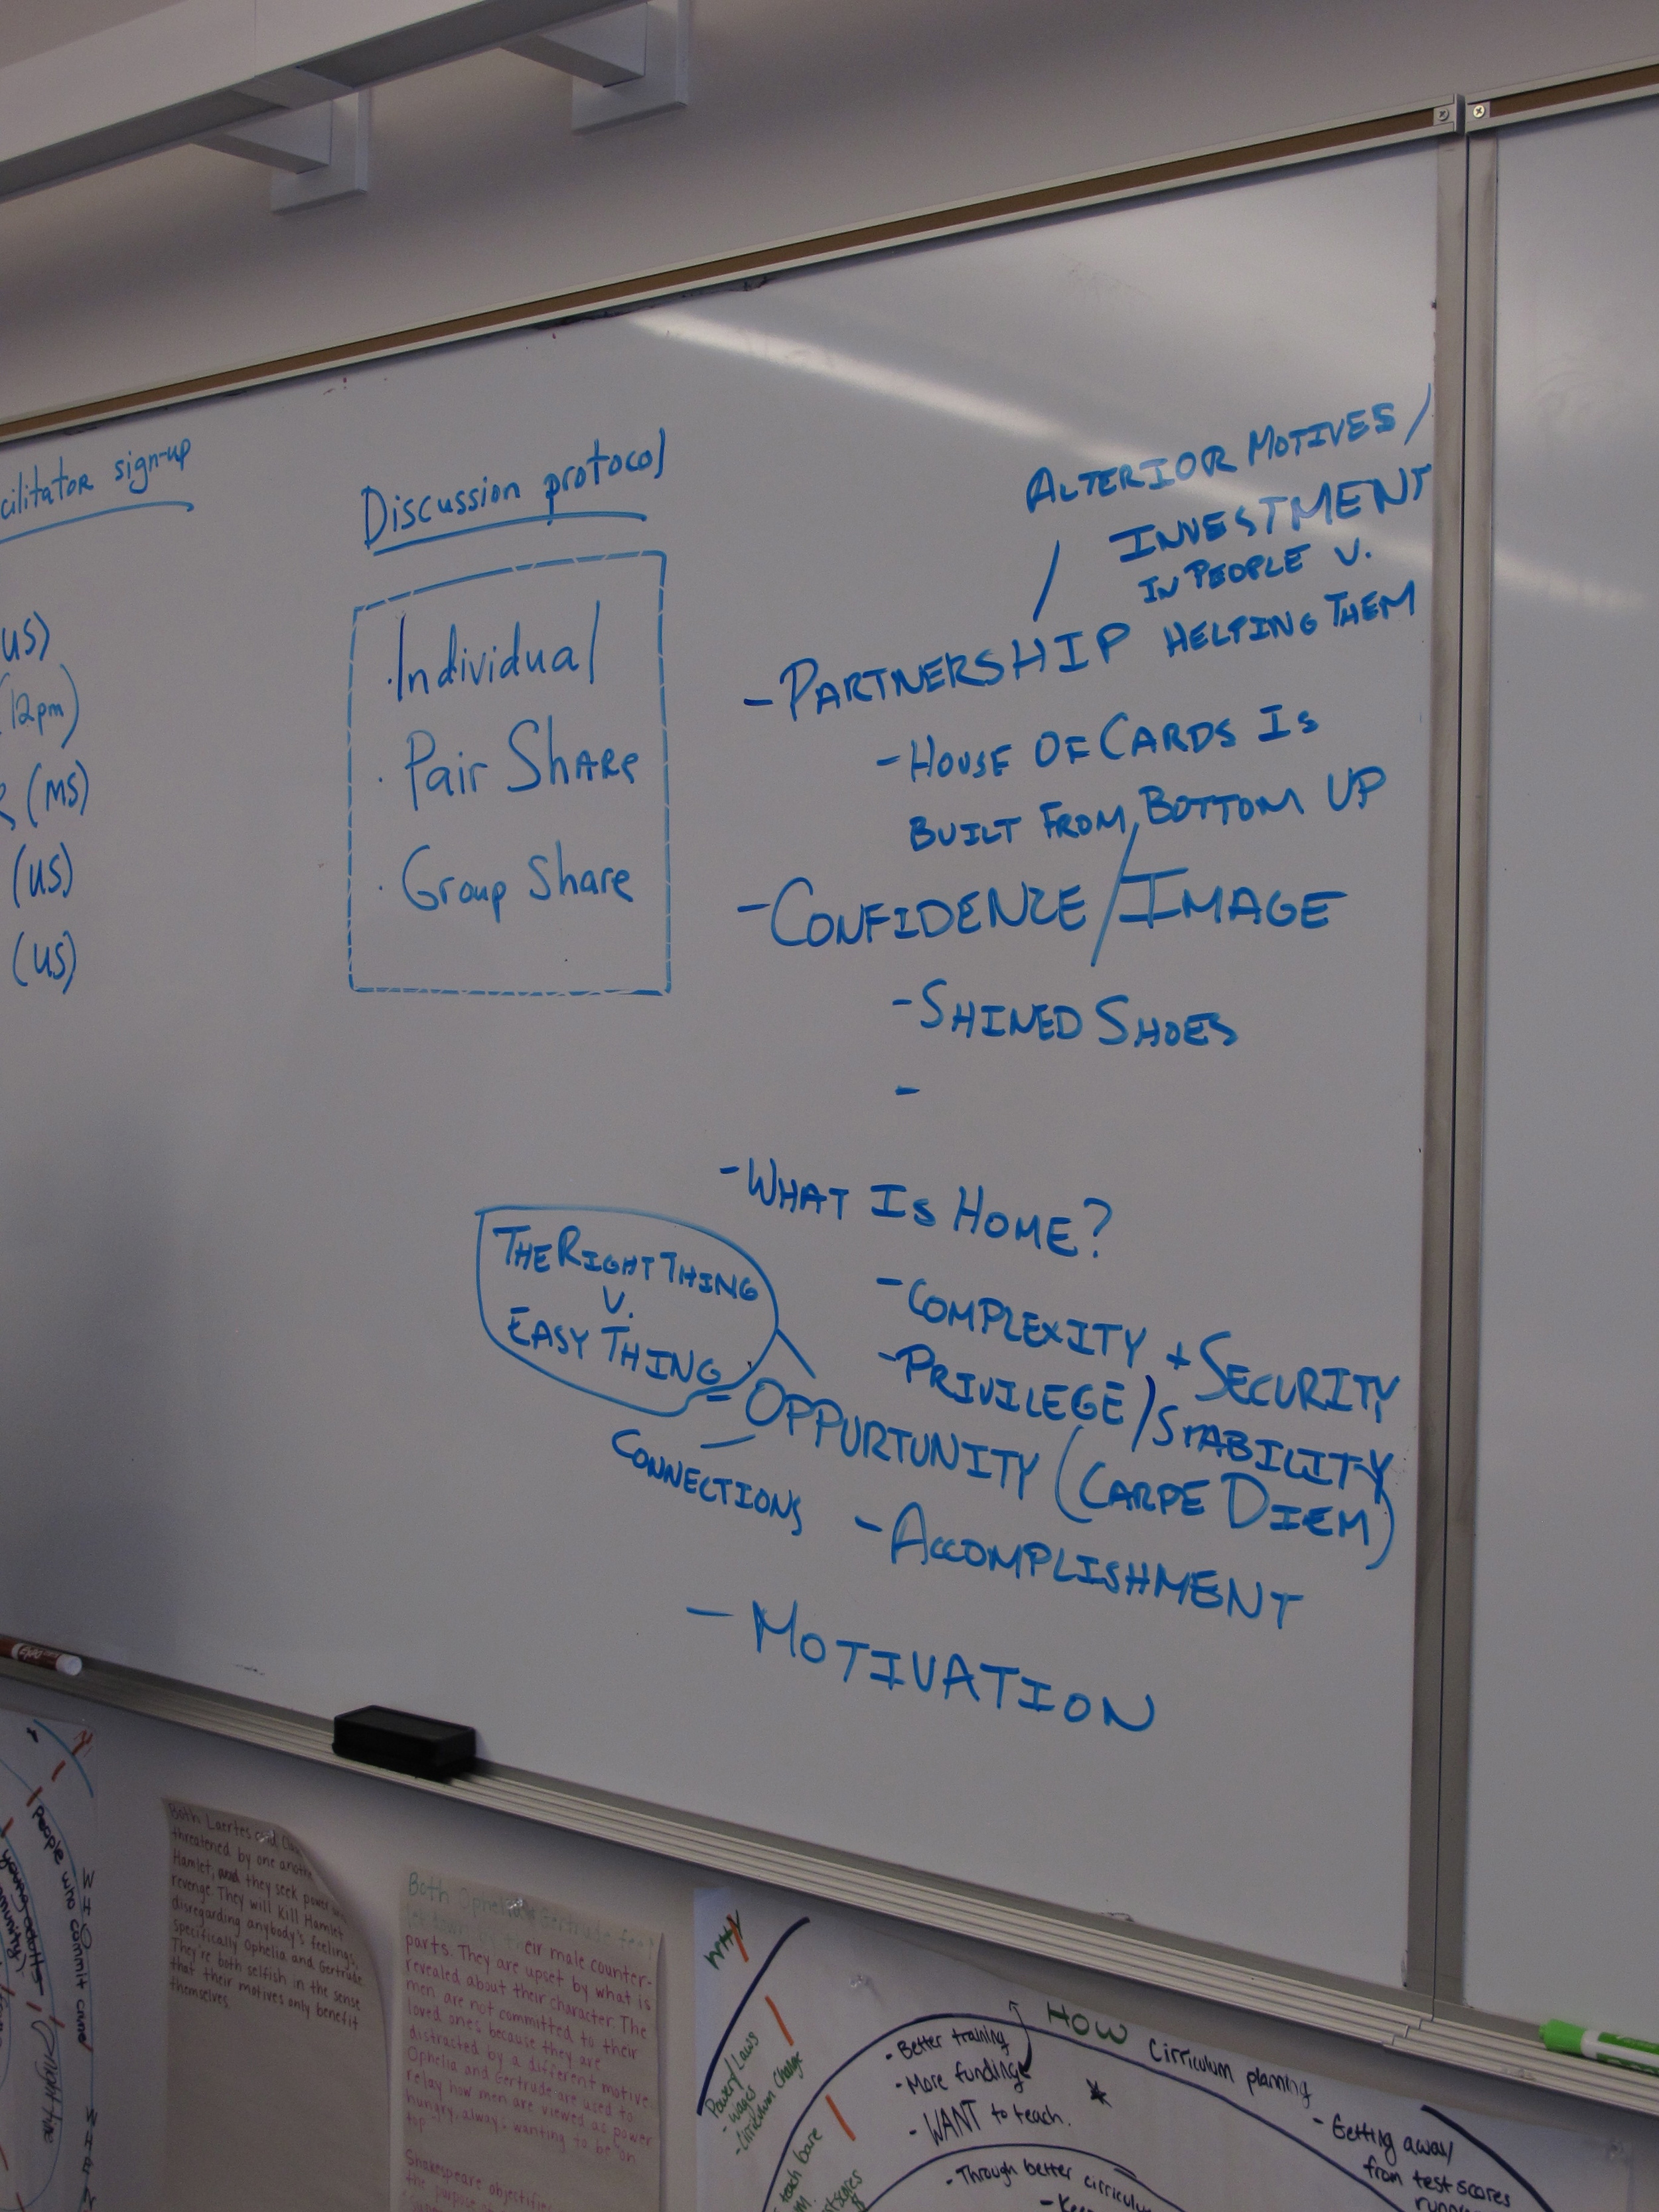 cilitator sign-up
US)
(12pm)
(MS)
(US)
(US)
Discussion protocol
· Individual
· Pair Share
· Group Share
ALTERIOR MOTIVES /
INVESTMENT
IN PEOPLE V.
HELPING THEM
- PARTNERSHIP
- HOUSE OF CARDS IS
BUILT FROM BOTTOM UP
- CONFIDENCE/IMAGE
- SHINED SHOES
-
- WHAT IS HOME?
- COMPLEXITY + SECURITY
- PRIVILEGE/STABILITY
THE RIGHT THING
V.
EASY THING
= OPPURTUNITY (CARPE DIEM)
CONNECTIONS
- ACCOMPLISHMENT
- MOTIVATION
people who commit crime
WHO
Both Laertes and
threatened by one
Hamlet, and they seek power
revenge. They will kill Hamlet
disregarding anybody's feelings,
specifically Ophelia and Gertrude
They're both selfish in the sense
that their motives only benefit
themselves
Both Ophelia & Gertrude
eir male counter-
parts. They are upset by what is
revealed about their character. The
men are not committed to their
loved ones because they are
distracted by a different motive.
Ophelia and Gertrude are used to
relay how men are viewed as power
hungry, always wanting to be "on
top"
Shakespeare
the purpose
WHY
Power/Laws
- wages
- Cirriculum Change
teach
HOW
- Better training
- More funding
- WANT to teach.
Cirriculum planning
- Getting away
from test scores
- Through better